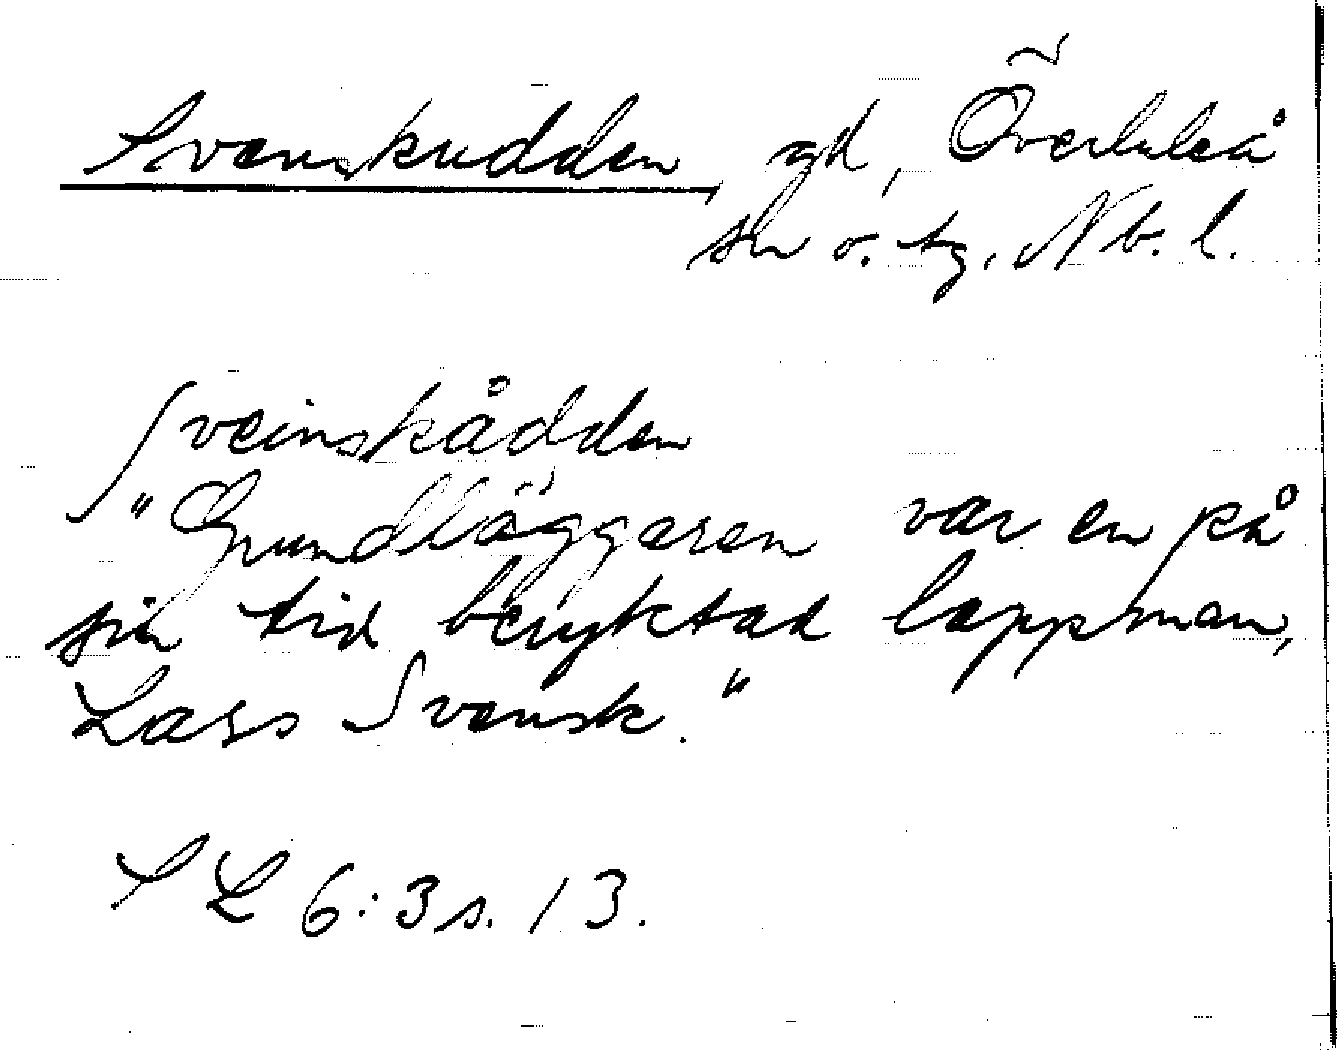 Svenskudden gd, Överluleå
sn o. tg. Nb. l.
Sveinskådden
"Grundläggaren var en på
sin tid beryktad lappman,
Lars Svensk."
SL 6:3 s. 13.